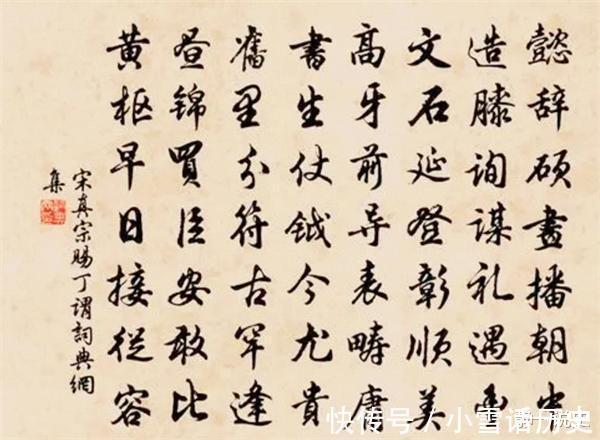 懿辞硕畫播朝中
造膝询谋礼遇
文石延登彰顺美
高牙前导表畴庸
書生仗钺今尤貴
舊里分符古罕逢
昼锦買臣安敢比
黄枢早日接從容
宋真宗賜丁謂詞典網
集
快传号/小雪话历史